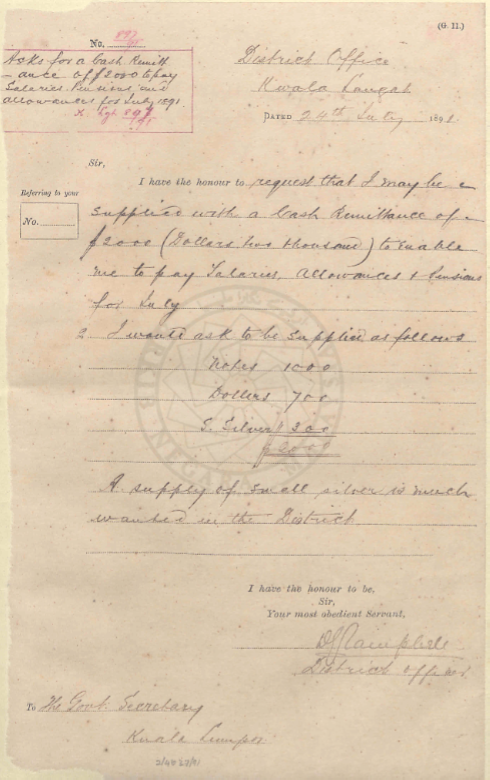 (G. II.)
No. 897/91
Asks for a Cash Remitt
-ance of $2000 to pay
Salaries Pensions and
allowances for July 1891.
K. Lgt 897/91
District Office
Kwala Langat
DATED 24th July 1891.
Sir,
Referring to your
No.
I have the honour to request that I may be
supplied with a Cash Remittance of
$2000 (Dollars two thousand) to enable
me to pay Salaries, Allowances & Pensions
for July
2 I would ask to be supplied as follows
Notes 1000
Dollars 700
S. Silver 300
$2000
A supply of small silver is much
wanted in the District
I have the honour to be,
Sir,
Your most obedient Servant,
Campbell
District Officer.
To The Govt. Secretary
Kuala Lumpor